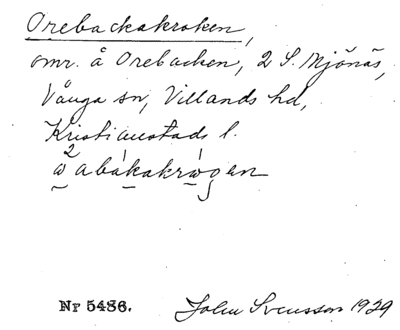 Orebackakroken,
omr. å Orebacken, 2 S. Mjönäs,
Vånga sn, Villands hd,
Kristianstads l.
Nr 5486. John Svensson 1929